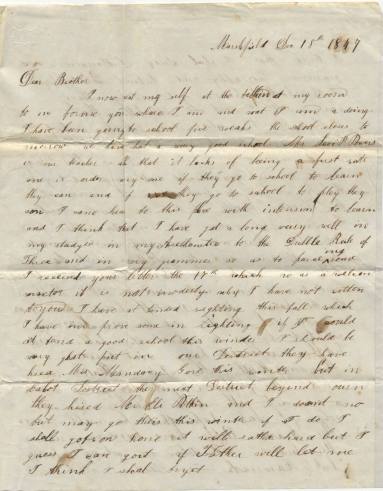 Marshfield Dec 15th 1847
Dear Brother
I now set my self at the in my room
to in forme you where I am and wat I am a doing
I have ben going to school five weaks the school closes to
morrow we have had a very good school Mr
is our teacher all that it lacks of being a first rate
one is order any one if they go to school to learn
they can and if they go to school to play they
can I came hear to this with intension to learn
and I think that I have got a long very well in
my studyes in my Arethmetic to the Duble Rule of
Three and in my gammer so as to
I received your letter the 12th which was a welcom
it is not that I have not riten
to you I have at tended righting this fall which
I have im prove some in righting if I could
at tend a good school this winter I should be
very glad for in our District they have
hired Mr Gove this winter but in
Cabot District the next District beyond ourn
they hired Mr and I dount no
but I may go there this winter if I do I
shall go from home it will be rather hard but I
guess I can go it if Father will let me
I think I shal try it